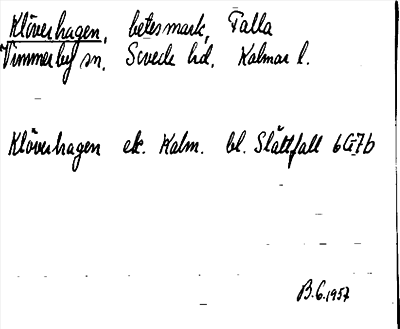 Klöverhagen, betesmark, Talla
Vimmerby sn. Sevede hd. Kalmar l.
Klöverhagen ek. Kalm. bl. Slättfall 6G7b
B.G.1957